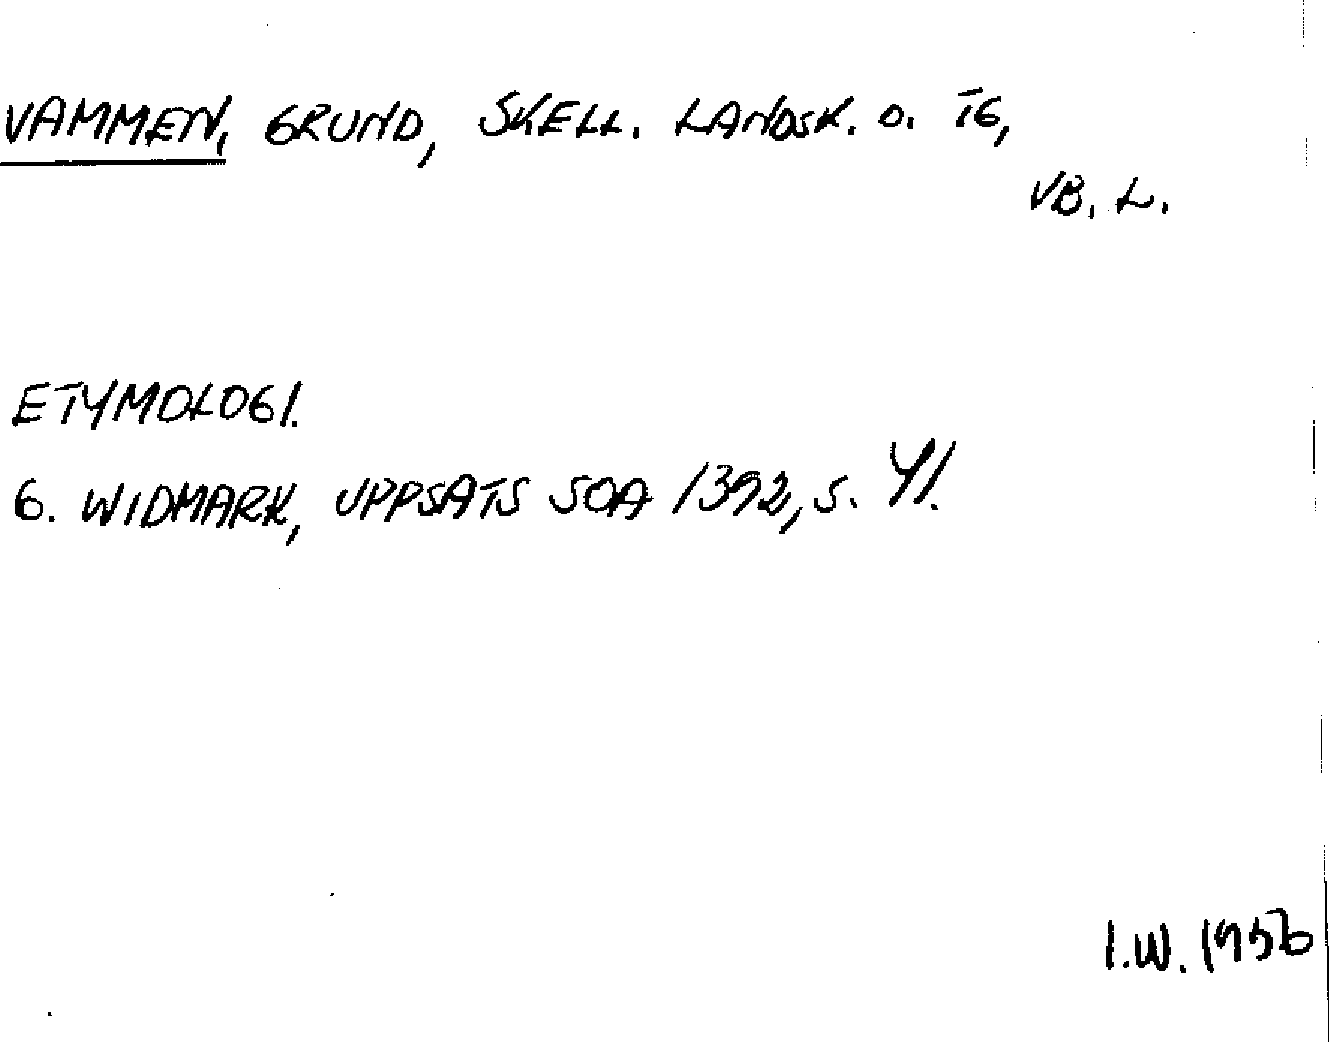 VAMMEN, GRUND, SKELL. LANDSK. O. TG,
VB. L.
ETYMOLOGI.
G. WIDMARK, UPPSATS SOA 1392, S. 41.
I.W. 1956